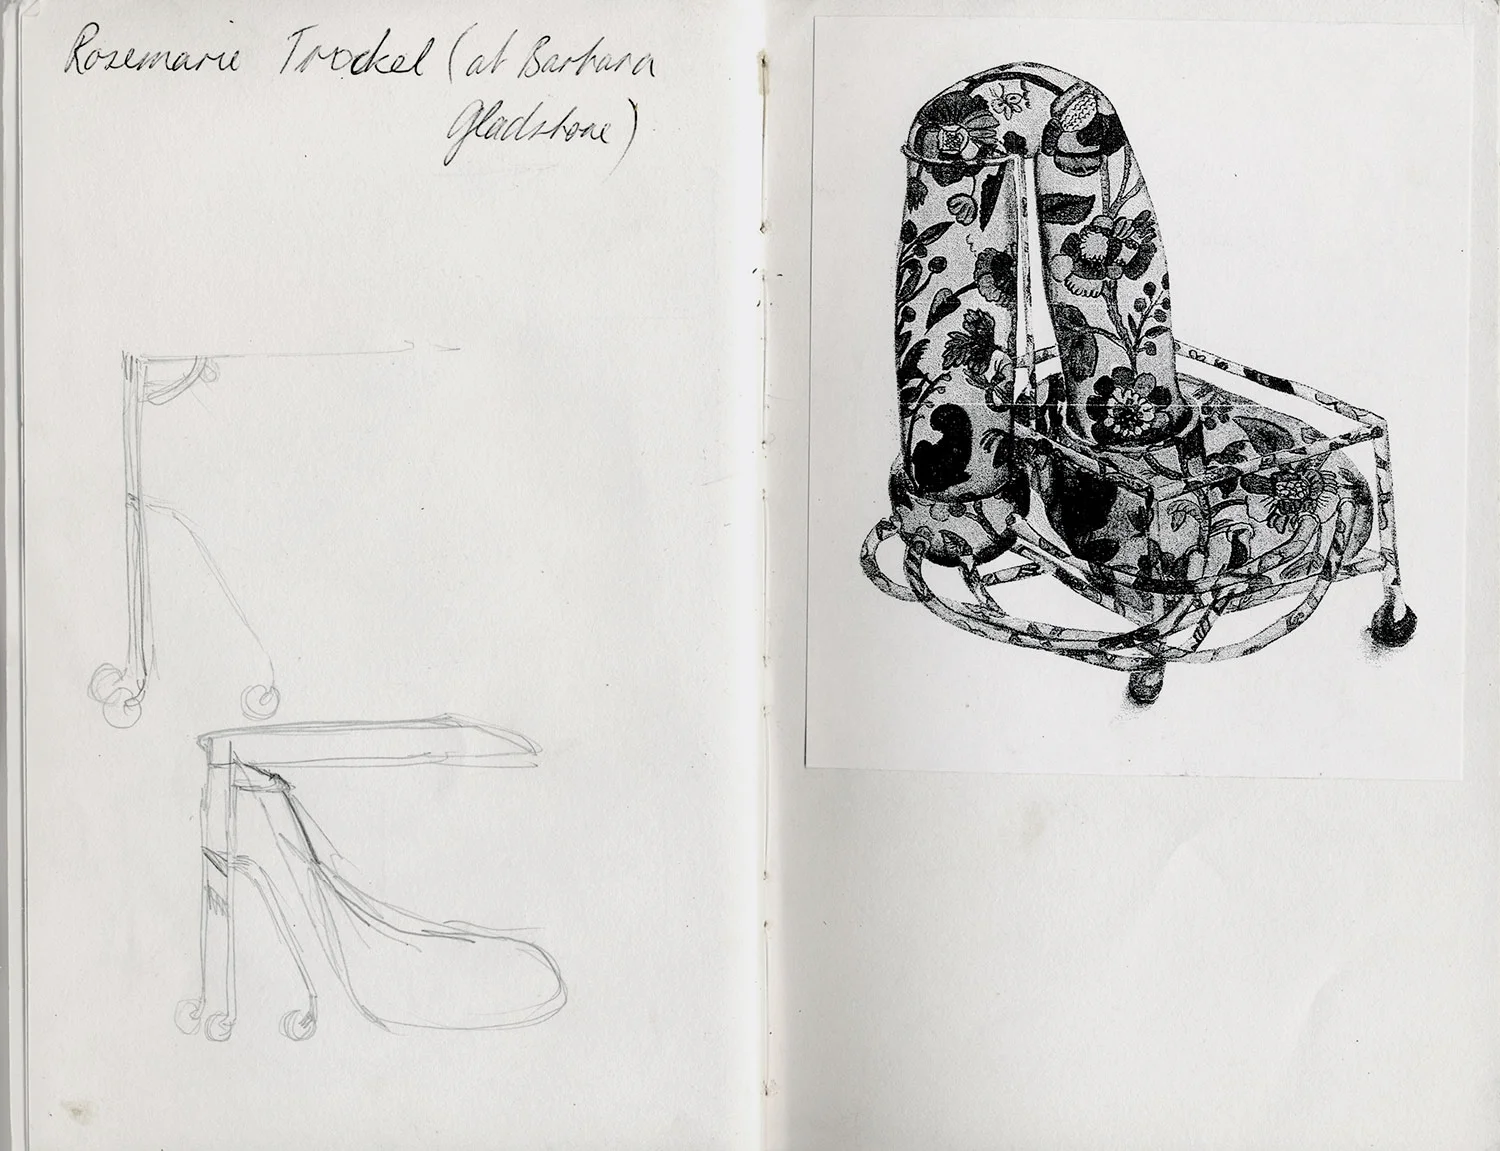 Rosemarie Trockel (at Barbara
Gladstone)